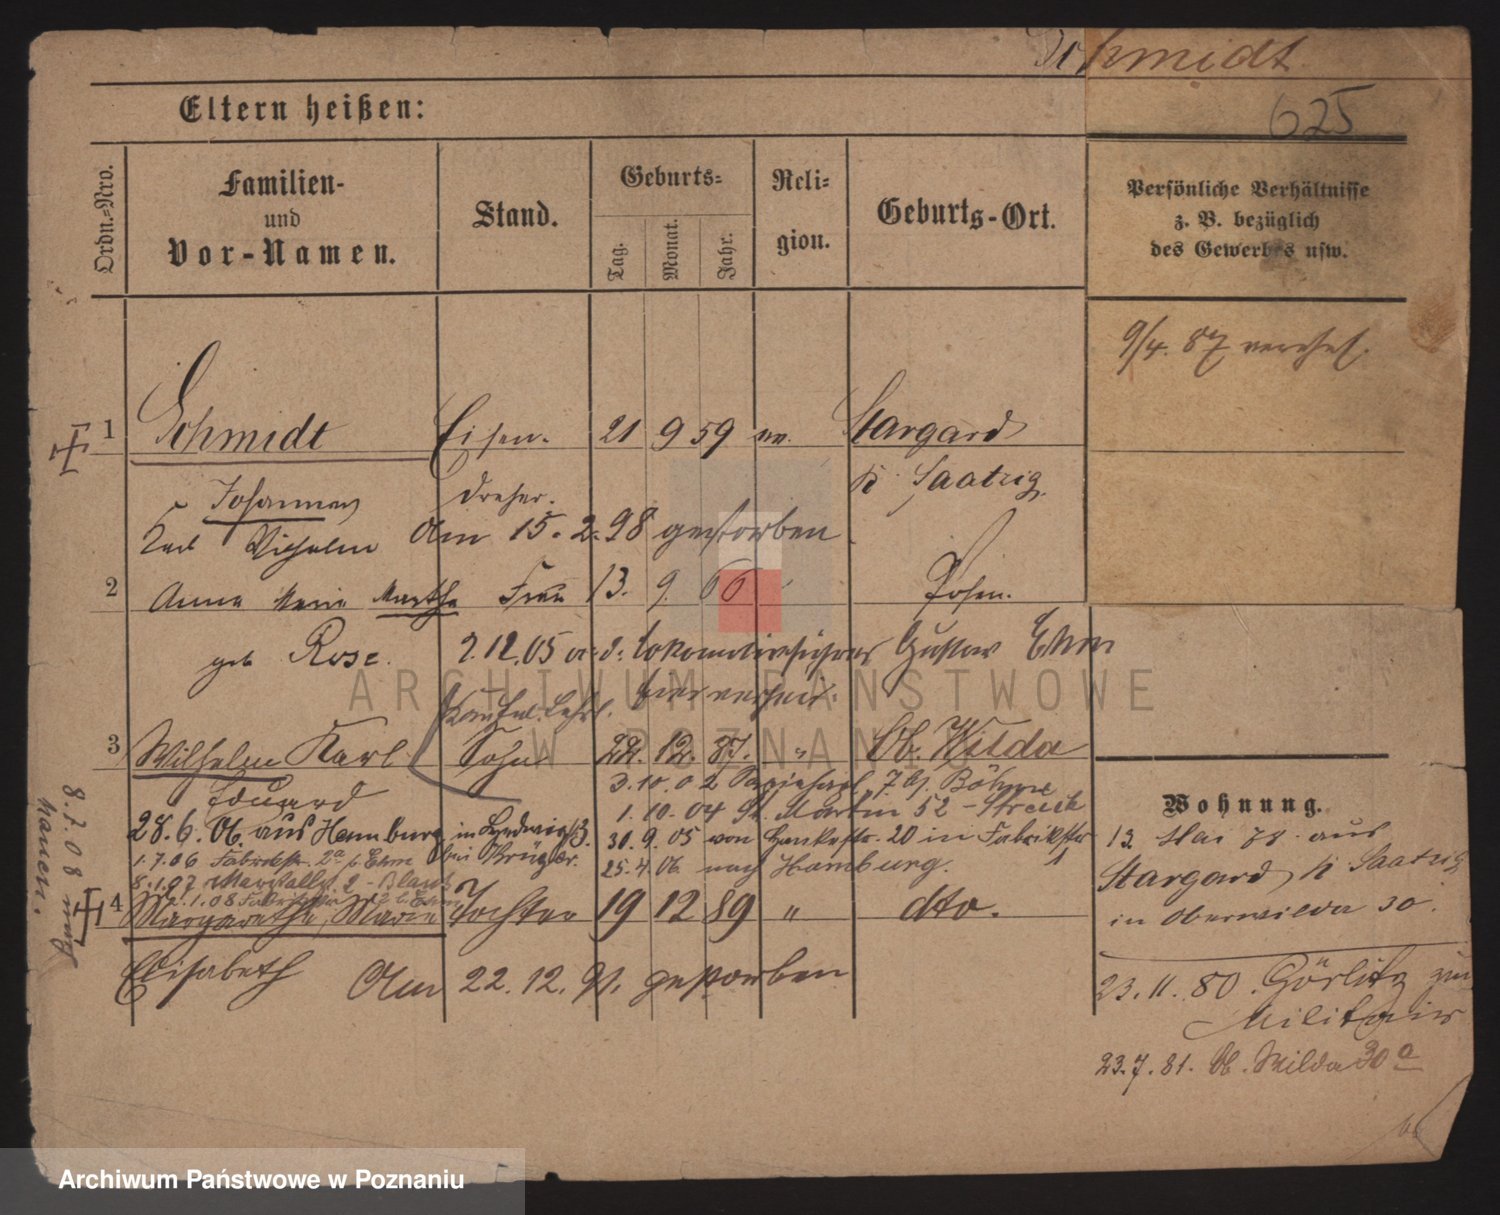 Schmidt
625
Eltern heißen:
Ordn.-Nro.
Familien-
und
Vor-Namen.
Stand.
Geburts-
Tag.
Monat.
Jahr.
Reli-
gion.
Geburts-Ort.
Persönliche Verhältnisse
z. B. bezüglich
des Gewerbes usw.
9/4. 87 verehel.
1 Schmidt Eisen- 21 9 59 ev. Stargard
Johannes dreher. Kr. Saatzig
Karl Wilhelm Am 15. 2. 98 gestorben
2 Anna Marie Martha Frau 13. 9. 66 Posen.
geb Rose. 2.12.05 Lokomotivführer Gustav Ehm
hier verheir.
Kaufm. Lehrl.
3 Wilhelm Karl Sohn 22. 12. 87. " Ob. Wilda
Eduard 3.10.02 7 bj. Böhme
1. 10. 04 St. Martin 52 -
28.6.06. aus Hamburg in
30.9.05 von 20 in Fabrikstr.
1.7.06 Fabrikstr. b. Ehm bei
25.4.06. nach Hamburg.
8.1.07 2 -
1.08
4 Margarethe, Marie Tochter 19 12 89 " dto.
Elisabeth Am 22. 12. 91. gestorben
8.7.08 nach
Wohnung.
13. Mai 78. aus
Stargard, Kr Saatzig
in Oberwilda 30.
23. 11. 80. Görlitz zum
Militair
23. 7. 81. Ob. Wilda 30a
ARCHIWUM PAŃSTWOWE
W POZNANIU
Archiwum Państwowe w Poznaniu